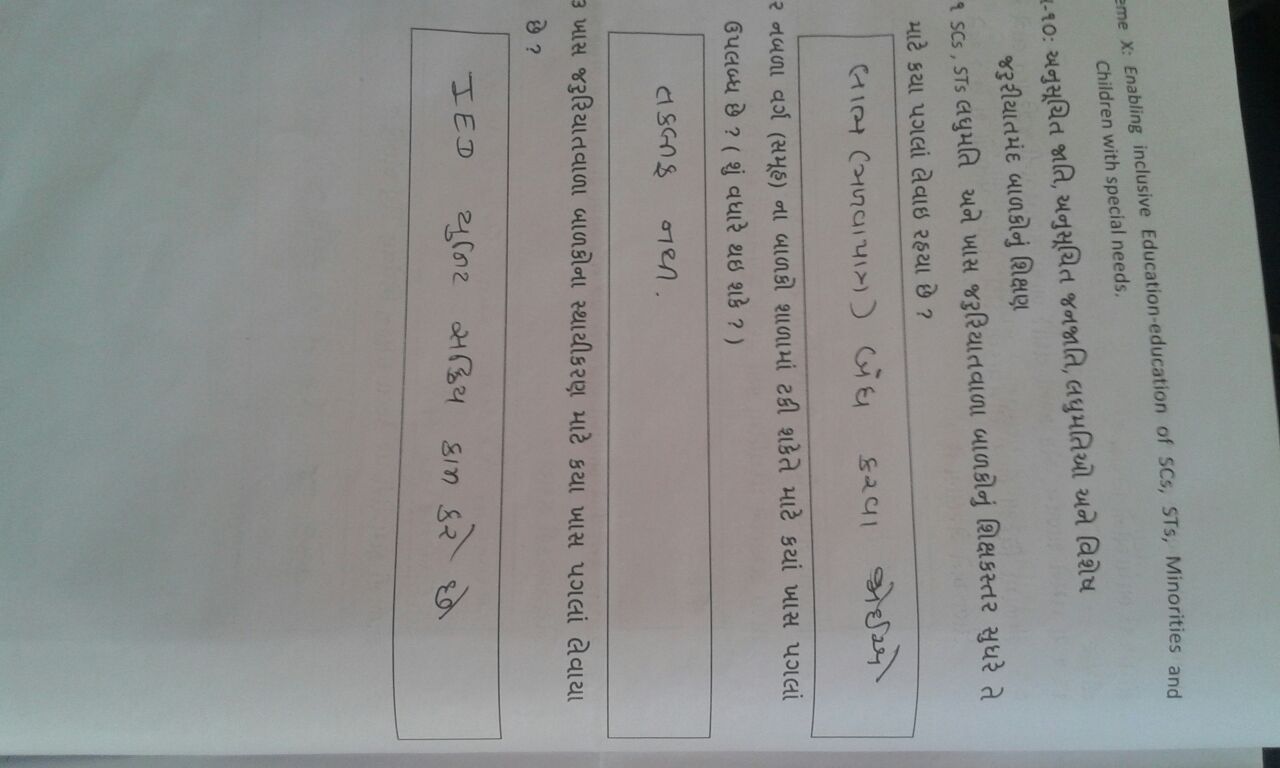 eme X: Enabling inclusive Education-education of SCs, STs, Minorities and
Children with special needs.
-૧૦: અનુસૂચિત જાતિ, અનુસૂચિત જનજાતિ, લઘુમતિઓ અને વિશેષ
જરૂરીયાતમંદ બાળકોનું શિક્ષણ
૧ SCs, STs લઘુમતિ અને ખાસ જરૂરિયાતવાળા બાળકોનું શિક્ષકસ્તર સુધરે તે
માટે કયા પગલાં લેવાઇ રહયા છે ?
લાભ (મળવાપાત્ર) બંધ કરવા જોઈએ
૨ નબળા વર્ગ (સમૂહ) ના બાળકો શાળામાં ટકી શકેતે માટે કયાં ખાસ પગલાં
ઉપલબ્ધ છે ? ( શું વધારે થઇ શકે ? )
તકલીફ નથી.
૩ ખાસ જરૂરિયાતવાળા બાળકોના સ્થાયીકરણ માટે કયા ખાસ પગલાં લેવાયા
છે ?
IED યુનિટ સક્રિય કામ કરે છે